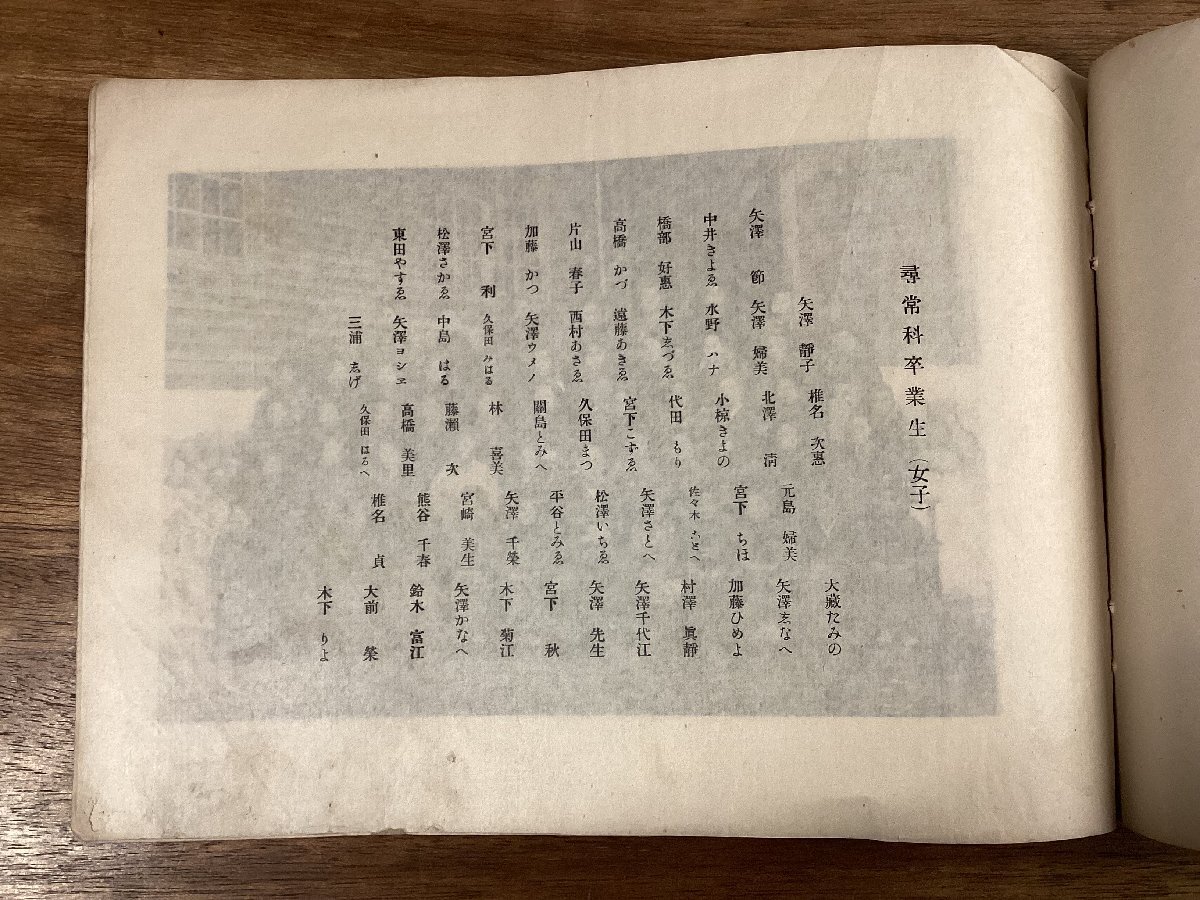 尋常科卒業生（女子）
矢澤 節
中井きよゑ
橋部 好惠
高橋 かづ
片山 春子
加藤 かつ
宮下 利
松澤さかゑ
東田やすゑ
矢澤 靜子
矢澤 婦美
水野 ハナ
木下志づゑ
遠藤あきゑ
西村あさゑ
矢澤ウメノ
久保田 みはる
中島 はる
矢澤ヨシヱ
三浦 志げ
椎名 次惠
北澤 淸
小椋きよの
代田 もり
宮下こずゑ
久保田まつ
關島とみへ
林 喜美
藤瀨 次
高橋 美里
久保田 はるへ
元島 婦美
宮下 ちほ
佐々木
矢澤さとへ
松澤いちゑ
平谷とみゑ
矢澤 千榮
宮崎 美生
熊谷 千春
椎名 貞
大藏たみの
矢澤志なへ
加藤ひめよ
村澤 眞靜
矢澤千代江
矢澤 先生
宮下 秋
木下 菊江
矢澤かなへ
鈴木 富江
大前 榮
木下 りよ